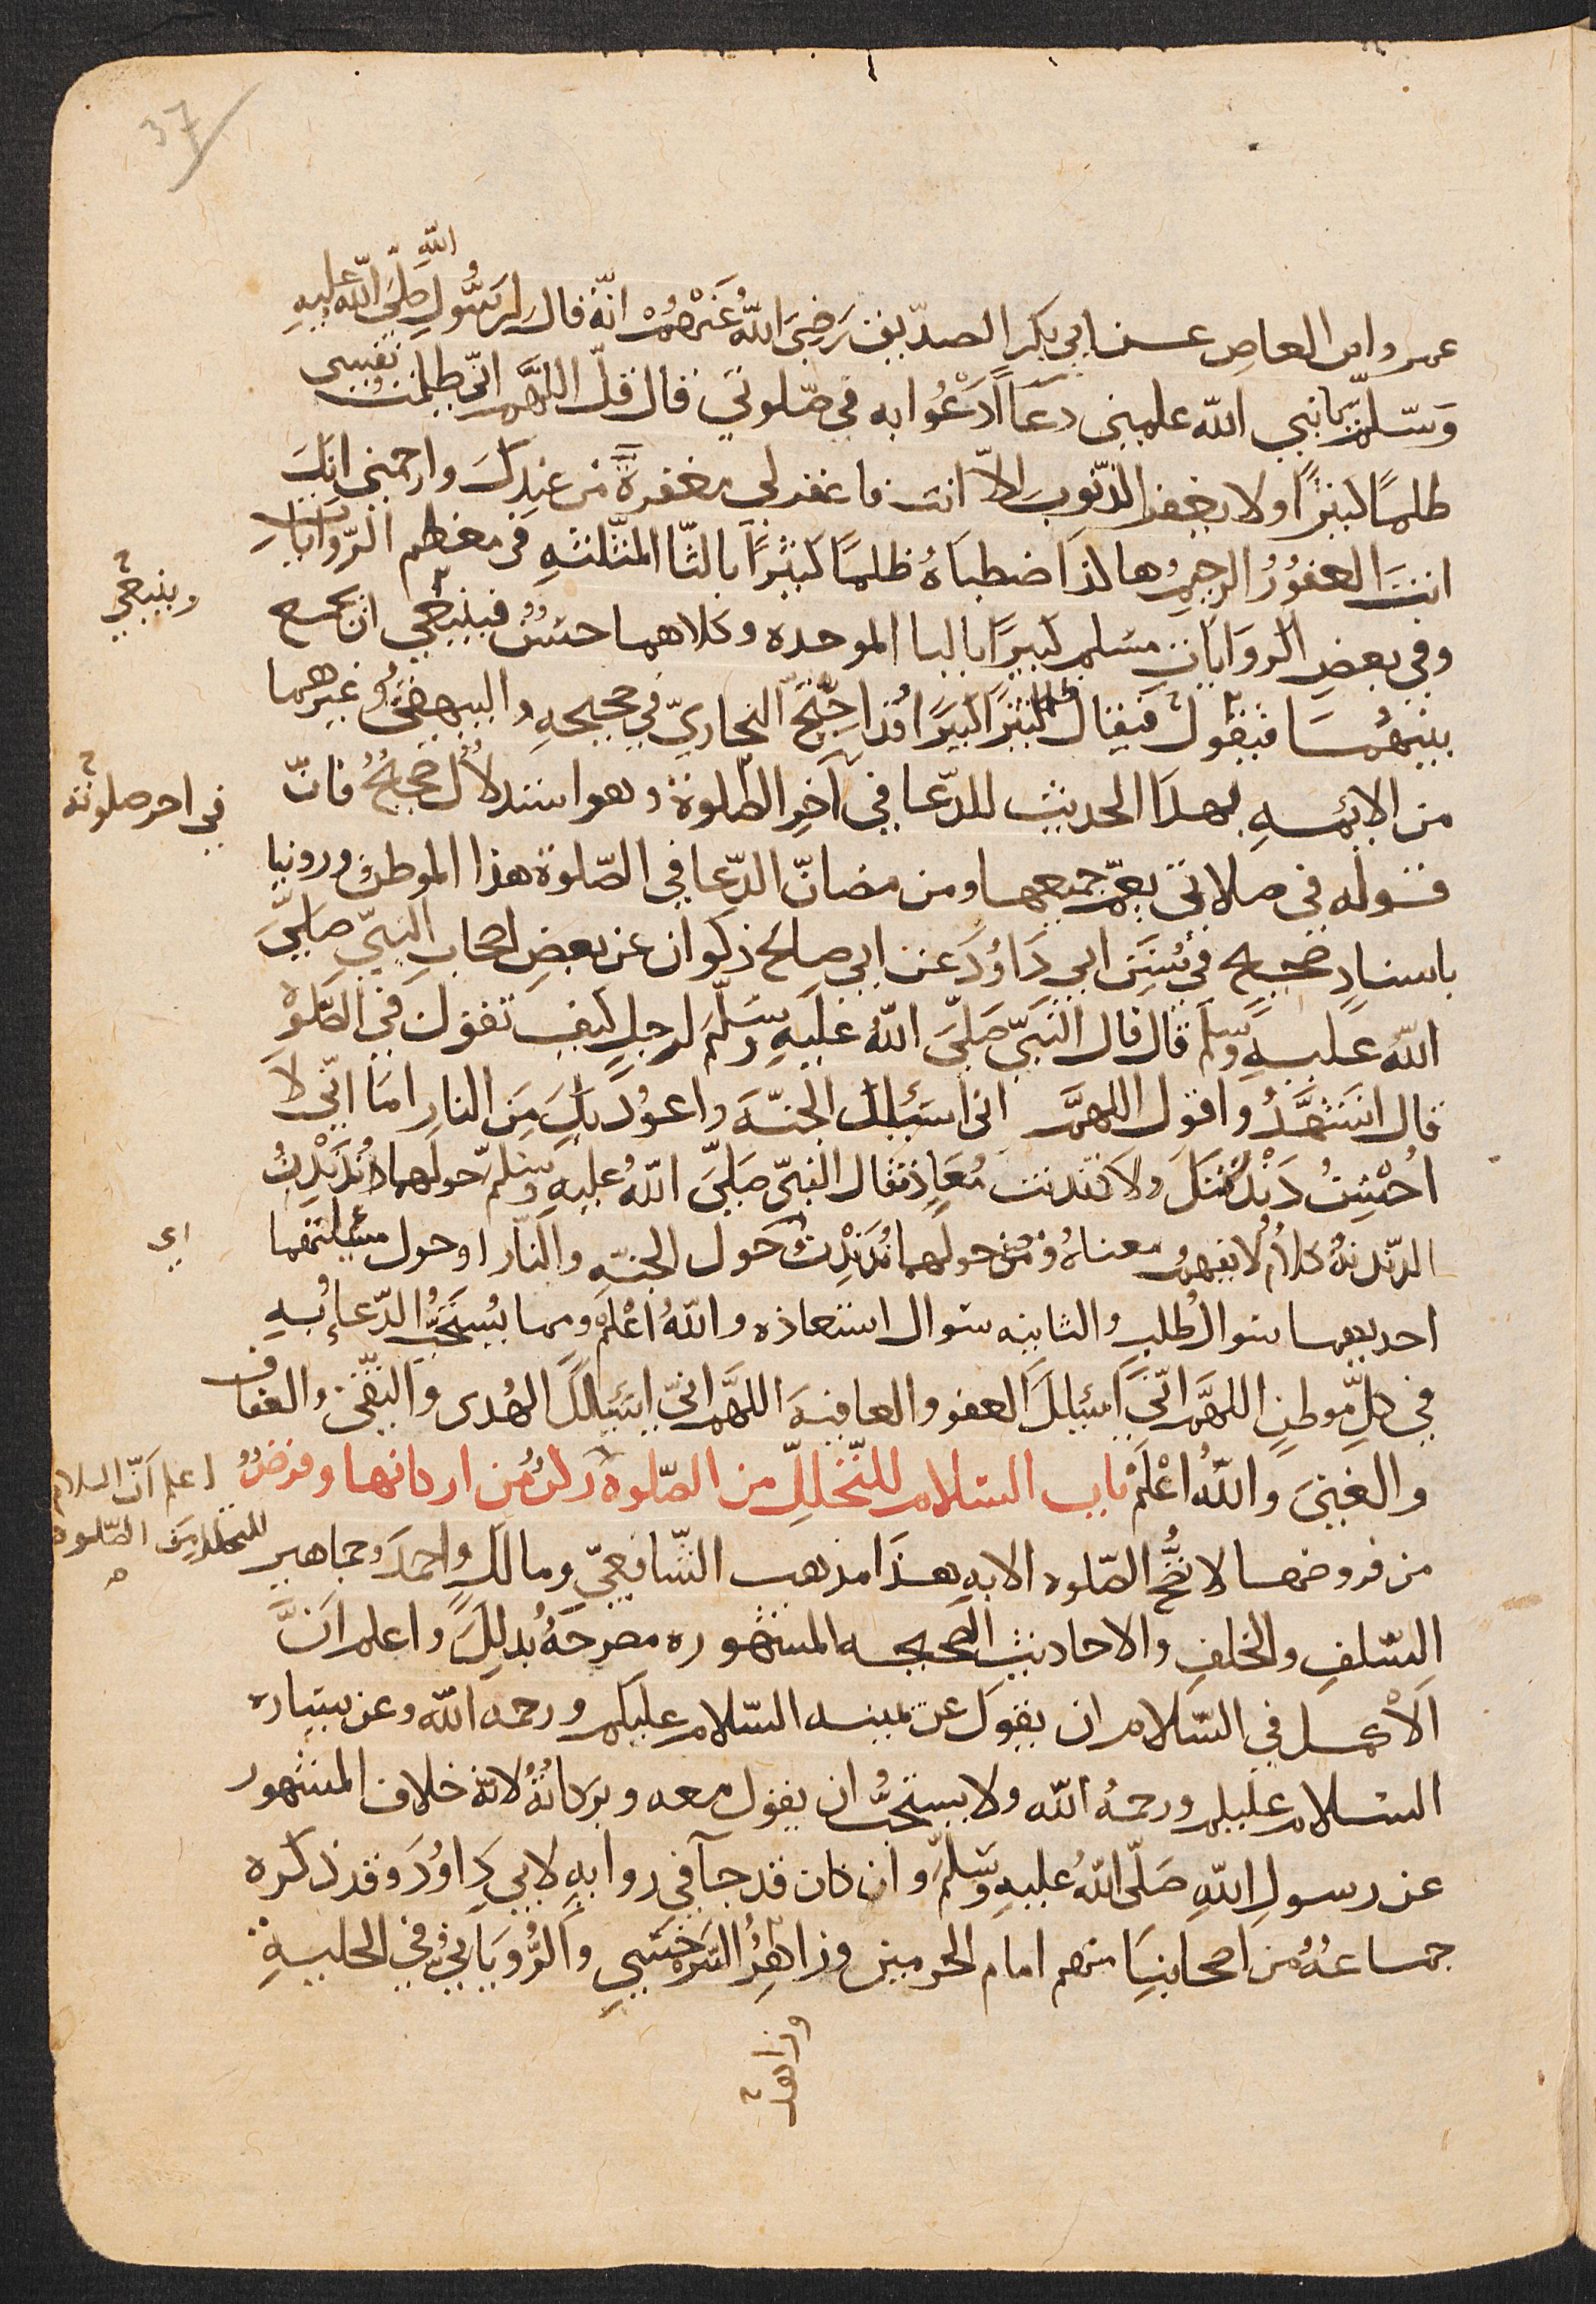 37
عمرو ابن العاص عن ابي بكر الصدّيق رَضِيَ اللّٰهُ عَنْهُمْ انّهُ قال لِرسُولِ اللّٰهِ صَلّى اللّٰه عليهِ
وَسَلّمَ يا نبي اللّٰه علمني دعَاً ادْعُوا به في صَلوتي قال قُل اللهمَّ انّي ظلمت نفسِى
ظلمًا كثيرًا ولا يغفر الذّنوبَ الّا انت فاغفر لى مغفرةً من عندِكَ وارحمنى انكَ
انتَ الغفورُ الرحيمُ هاكذا ضطبَاهُ ظلمًا كثيرًا بالثا المثلثهِ في معظم الرّوَاياتِ
وينبغي
وفي بعضِ الروَاياتِ مسلم كبيرًا بالبا الموحده وكلاهما حسنٌ فينبغي ان يجمع
بينهُمَا فيقول فيقال ظلما كثيرًا كبيرًا وقد احتجّ البخاريّ في صحيحهِ والبيهقيُّ وغيرهما
من الايمهِ بهذا الحديث للدّعا في آخِرِ الصّلوة وهو استدلالٌ صحيحٌ فانّ
في اخر صلوته
قوله في صلاتى يعمّ جميعها ومن مضانّ الدّعا في الصّلوة هذا الموطنُ وروينا
باسنادٍ صحيح في سُنَنِ ابي دَاوُدَ عن ابي صالح ذكوان عن بعضِ اصحابِ النبيّ صلّى
اللّٰه عليهِ وسَلم قال قال النبيّ صَلّى اللّٰهُ عليهِ وسَلّمَ لرجلٍ كيف تقول في الصّلوة
قال اتشهّدُ واقول اللهمَّ اني اسئلك الجنّة واعوُذ بك مِنَ النارِ امَا انّي لا
اُحْسِنُ دَنْدَنتَكَ ولا دندنتَ مُعَاذٍ فقال النبيّ صَلّى اللّٰهُ عليهِ وسَلّم حولهما نُدَنْدِنُ
الدّندنةُ كلامٌ لا يفهمُ معناهُ ومعنى حولهما نُدَنْدِنُ حَول الجنّةِ والنّارِ او حول مسئلتهما
اي
احديهما سوالُ طلبٍ والثانيه سوال استعاذه واللّٰهُ اعْلَمُ ومما يُستحَبُّ الدّعاء بهِ
في كلِّ موطنٍ اللهمَّ انّي اسئلكَ العفو والعافيةَ اللهمَّ انّي اسئلكَ الهُدى والتّقى والعفاف
والغِنىَ واللّٰهُ اعْلَمْ باب السّلام للتّحلّلِ من الصّلوة ركنٌ من اركانها وفرضٌ
اعلم انّ السلام
للتحلّلِ مِنَ الصّلوه
من فروضها لا تصِحُّ الصّلوه الا بهِ هذا مذهب الشّافعيّ ومالكٍ واحمدَ وجماهيرِ
السّلفِ والخلفِ والاحاديث الصحيحه المشهوره مصرحةُ بذلكَ واعلم انَّ
الاَكْمل في السّلام ان يقولَ عن يمينه السّلام عليكم ورحمه اللّٰه وعن يساره
السّلام عليكم ورحمهُ اللّٰه ولا يستحبُّ ان يقول معه وبركاتُهُ لانّه خلاف المشهور
عن رسولِ اللّٰهِ صَلّى اللّٰهُ عليهِ وسَلّمَ وان كان قد جآ في روايهٍ لابي دَاوُدَ وقد ذكره
جماعهُ من اصحابنَا منهم امام الحرمين وزاهِرُ السّرخسِيِ والرُّويَانِيُ في الحليهِ
وزاهد